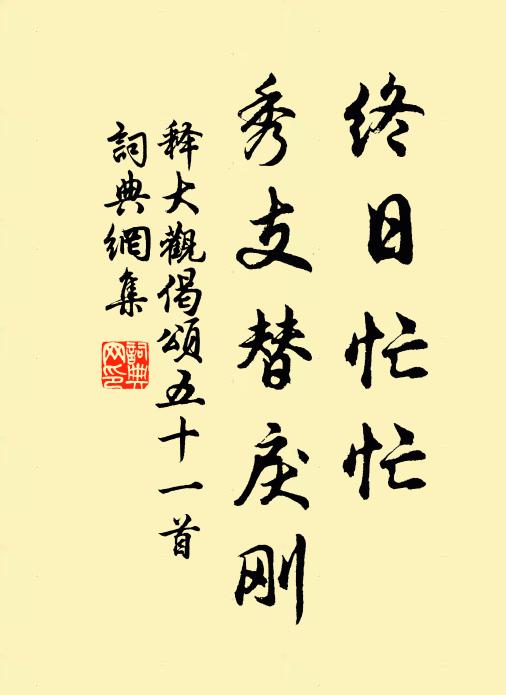 終日忙忙
秀支替戾刚
释大觀偈頌五十一首
詞典網集
詞典网印